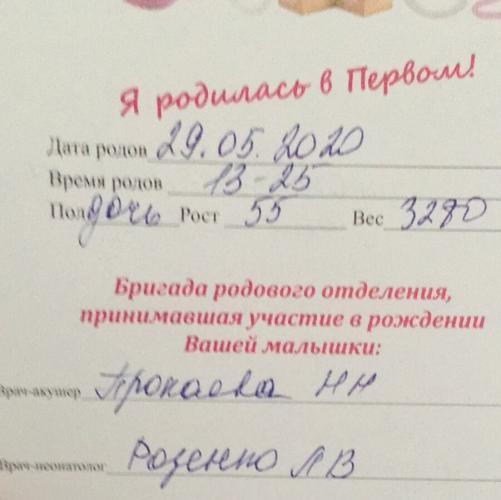 Я родилась в Первом!
Дата родов 29.05.2020
Время родов 13-25
Пол дочь Рост 55 Вес 3280
Бригада родового отделения,
принимавшая участие в рождении
Вашей малышки:
Врач-акушер НН
Врач-неонатолог Розенко ЛВ